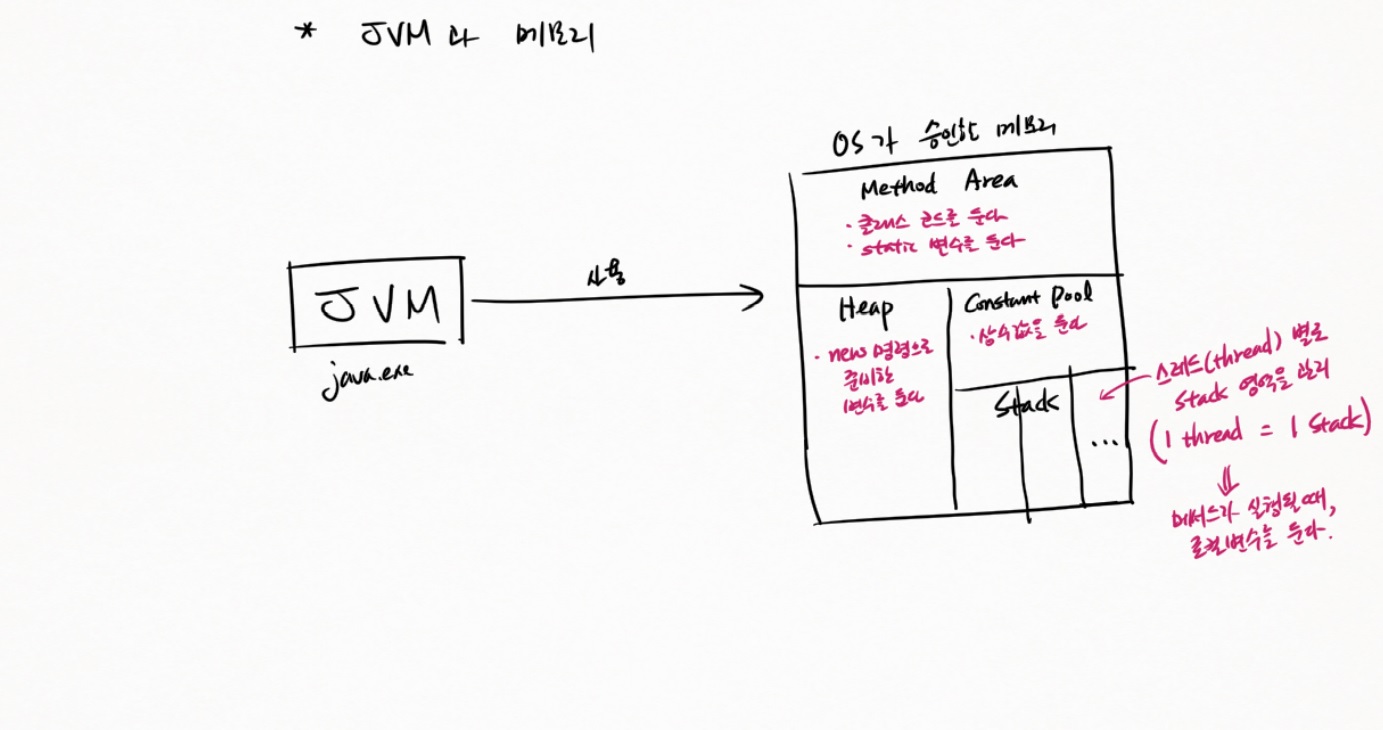 * JVM 과 메모리
OS가 승인한 메모리
Method Area
· 클래스 코드를 둔다
· static 변수를 둔다
JVM
java.exe
사용
Heap
· new 명령으로
준비한
변수를 둔다
Constant Pool
· 상수값을 둔다
Stack
...
스레드(thread) 별로
Stack 영역을 관리
(1 thread = 1 Stack)
⇓
메서드가 실행될 때,
로컬변수를 둔다.